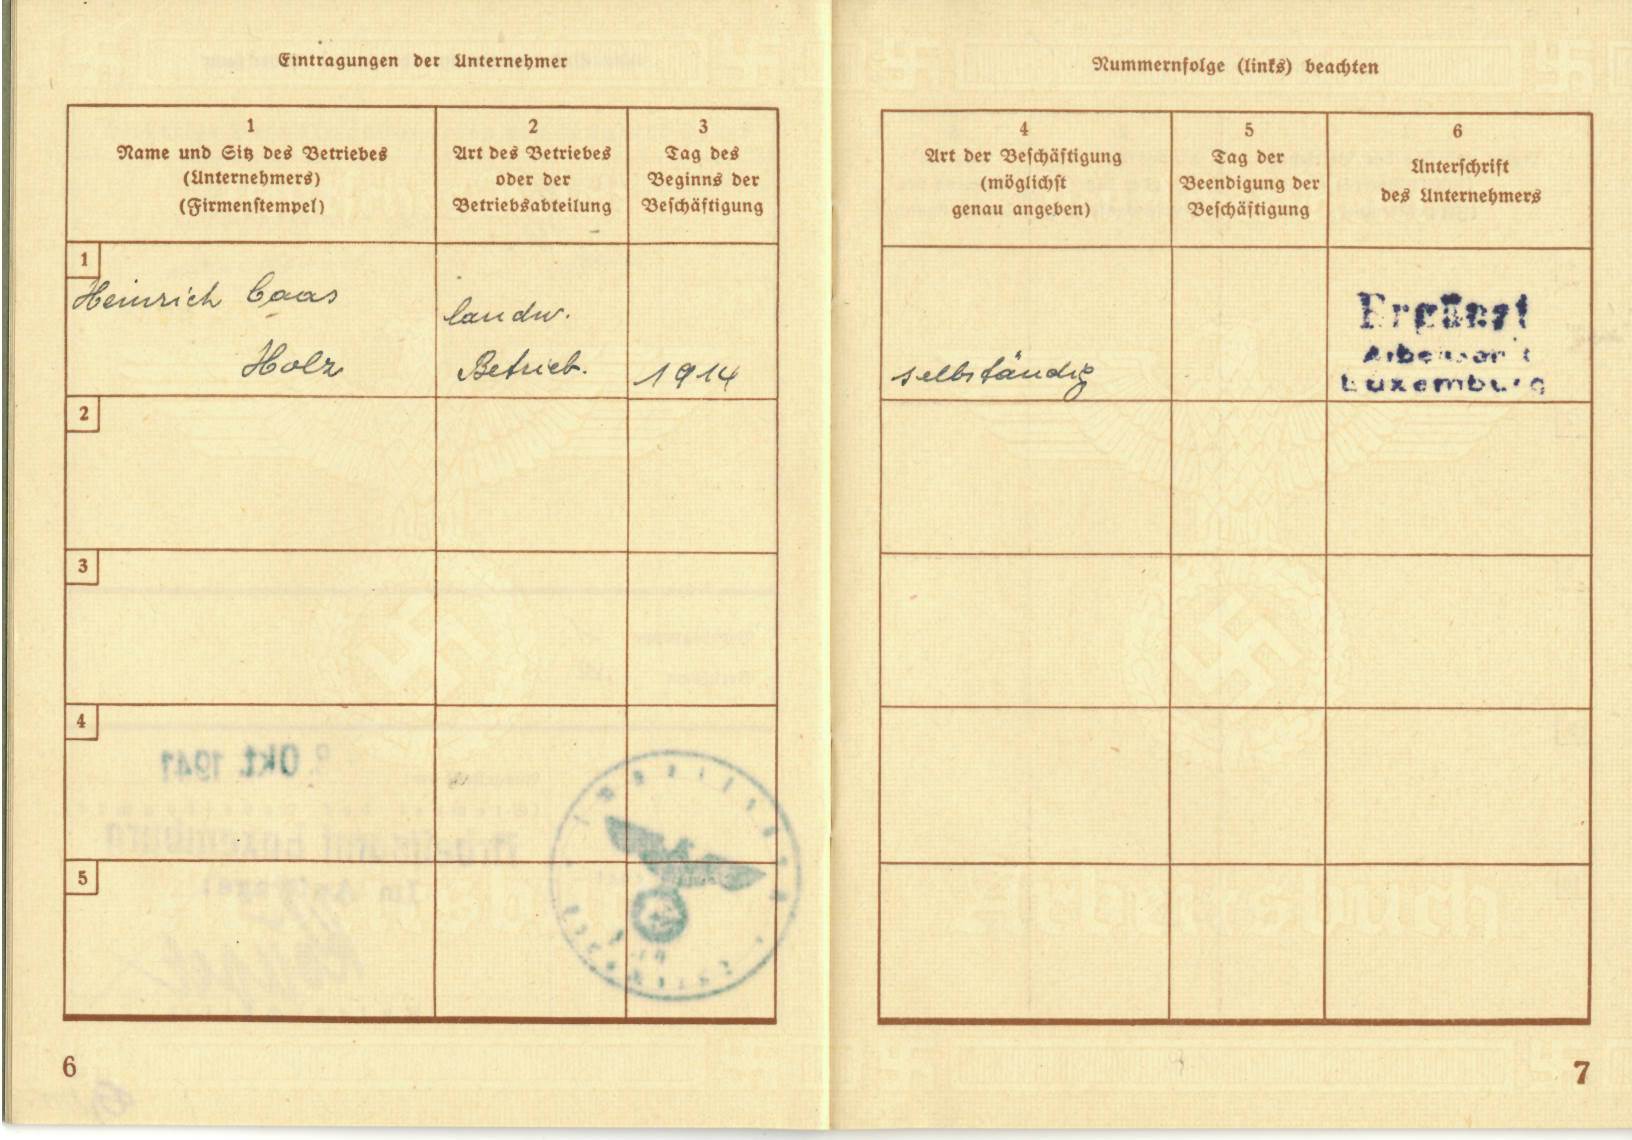 Eintragungen der Unternehmer
1
Name und Sitz des Betriebes
(Unternehmers)
(Firmenstempel)
2
Art des Betriebes
oder der
Betriebsabteilung
3
Tag des
Beginns der
Beschäftigung
1
Heinrich Caas
Holz
landw.
Betrieb.
1914
2
3
4
9. Okt. 1941
Arbeitsamt Luxemburg
Im Auftrage:
5
6
Nummernfolge (links) beachten
4
Art der Beschäftigung
(möglichst
genau angeben)
5
Tag der
Beendigung der
Beschäftigung
6
Unterschrift
des Unternehmers
selbständig
Ergänzt
Arbeitsamt
Luxemburg
Arbeitsbuch
7